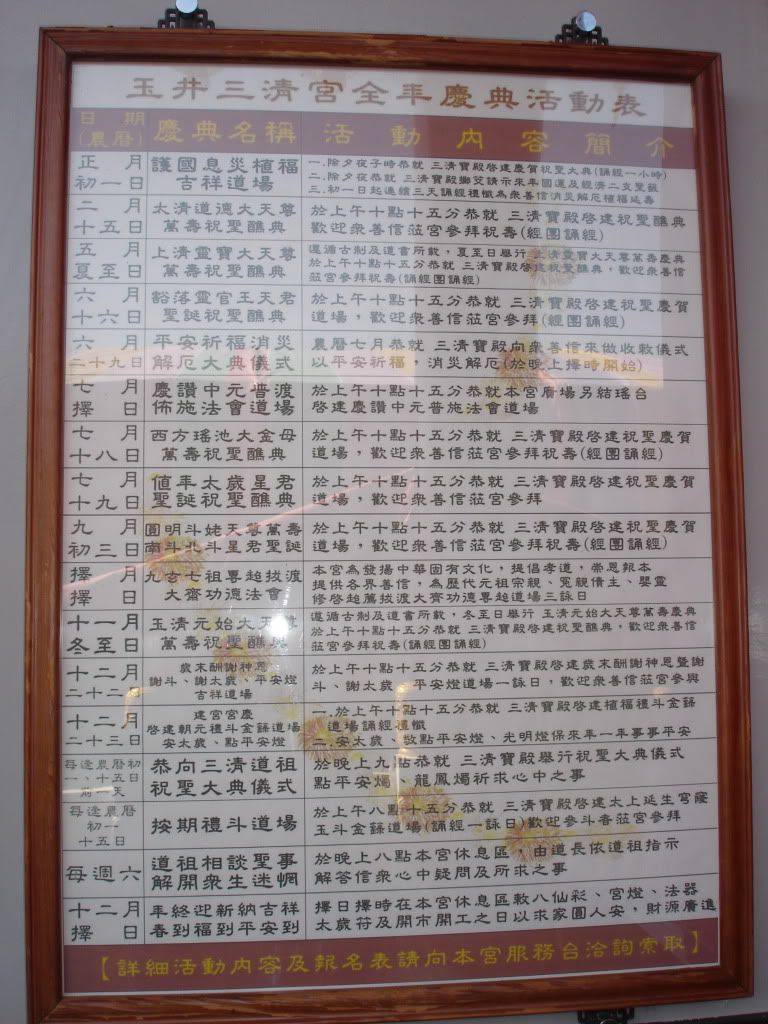 玉井三清宮全年慶典活動表
日期(農曆) 慶典名稱 活動內容簡介
正月初一日
護國息災植福
吉祥道場
一.除夕夜子時恭就 三清寶殿啓建慶賀祝聖大典(誦經一小時)
二.除夕夜恭就 三清寶殿擲筊請示來年國運及經濟二支聖籤
三.初一日起進續三天誦經禮懺為衆善信消災解厄植福延壽
二月十五日
太清道德大天尊
萬壽祝聖醮典
於上午十點十五分恭就 三清寶殿啓建祝聖醮典
歡迎衆善信蒞宮參拜祝壽(經團誦經)
五月夏至日
上清靈寶大天尊
萬壽祝聖醮典
遵循古制及道書所載，夏至日舉行 上清靈寶大天尊萬壽慶典
於上午十點十五分恭就 三清寶殿啓建祝聖醮典，歡迎衆善信
蒞宮參拜祝壽(誦經團誦經)
六月十六日
豁落靈官王天君
聖誕祝聖醮典
於上午十點十五分恭就 三清寶殿啓建祝聖慶賀
道場，歡迎衆善信蒞宮參拜(經團誦經)
六月二十九日
平安祈福消災
解厄大典儀式
農曆七月恭就 三清寶殿向衆善信來做收敕儀式
以平安祈福、消災解厄(於晚上擇時開始)
七月擇日
慶讚中元普渡
佈施法會道場
於上午十點十五分恭就本宮廣場另結瑤台
啓建慶讚中元普施法會道場
七月十八日
西方瑤池大金母
萬壽祝聖醮典
於上午十點十五分恭就 三清寶殿啓建祝聖慶賀
道場，歡迎衆善信蒞宮參拜祝壽(經團誦經)
七月十九日
值年太歲星君
聖誕祝聖醮典
於上午十點十五分恭就 三清寶殿啓建祝聖慶賀
道場，歡迎衆善信蒞宮參拜
九月初三日
圓明斗姥天尊萬壽
南斗北斗星君聖誕
於上午十點十五分恭就 三清寶殿啓建祝聖慶賀
道場，歡迎衆善信蒞宮參拜祝壽(經團誦經)
擇月擇日
九玄七祖專超拔渡
大齋功德法會
本宮為發揚中華固有文化，提倡孝道，崇恩報本
提供各界善信，為歷代元祖宗親、冤親債主、嬰靈
修啓超薦拔渡大齊功德專超道場三詠日
十一月冬至日
玉清元始大天尊
萬壽祝聖醮典
遵循古制及道書所載，冬至日舉行 玉清元始大天尊萬壽慶典
於上午十點十五分恭就 三清寶殿啓建祝聖醮典，歡迎衆善信
蒞宮參拜祝壽(誦經團誦經)
十二月二十二日
歲末酬謝神恩、
謝斗、謝太歲、平安燈
吉祥道場
於上午十點十五分恭就 三清寶殿啓建歲末酬謝神恩暨謝
斗、謝太歲、平安燈道場一詠日，歡迎衆善信蒞宮參與
十二月二十三日
建宮宮慶
啓建朝元禮斗金籙道場
安太歲、點平安燈
一.於上午十點十五分恭就 三清寶殿啓建植福禮斗金籙
道場誦經禮懺
二.安太歲、敬點平安燈、光明燈保來年一年事事平安
每逢農曆初
一、十五日
前一天
恭向三清道祖
祝聖大典儀式
於晚上九點恭就 三清寶殿舉行祝聖大典儀式
點平安燭、龍鳳燭祈求心中之事
每逢農曆
初一
十五日
按期禮斗道場
於上午八點十五分恭就 三清寶殿啓建太上延生
玉斗金籙道場(誦經一詠日)歡迎參斗者蒞宮參拜
每週六
道祖相談聖事
解開衆生迷惘
於晚上八點本宮休息區，由道長依道祖指示
解答信衆心中疑問及所求之事
十二月擇日
年終迎新納吉祥
春到福到平安到
擇日擇時在本宮休息區敕八仙彩、宮燈、法器
太歲符及開市開工之日以求家圓人安，財源廣進
【詳細活動內容及報名表請向本宮服務台洽詢索取】